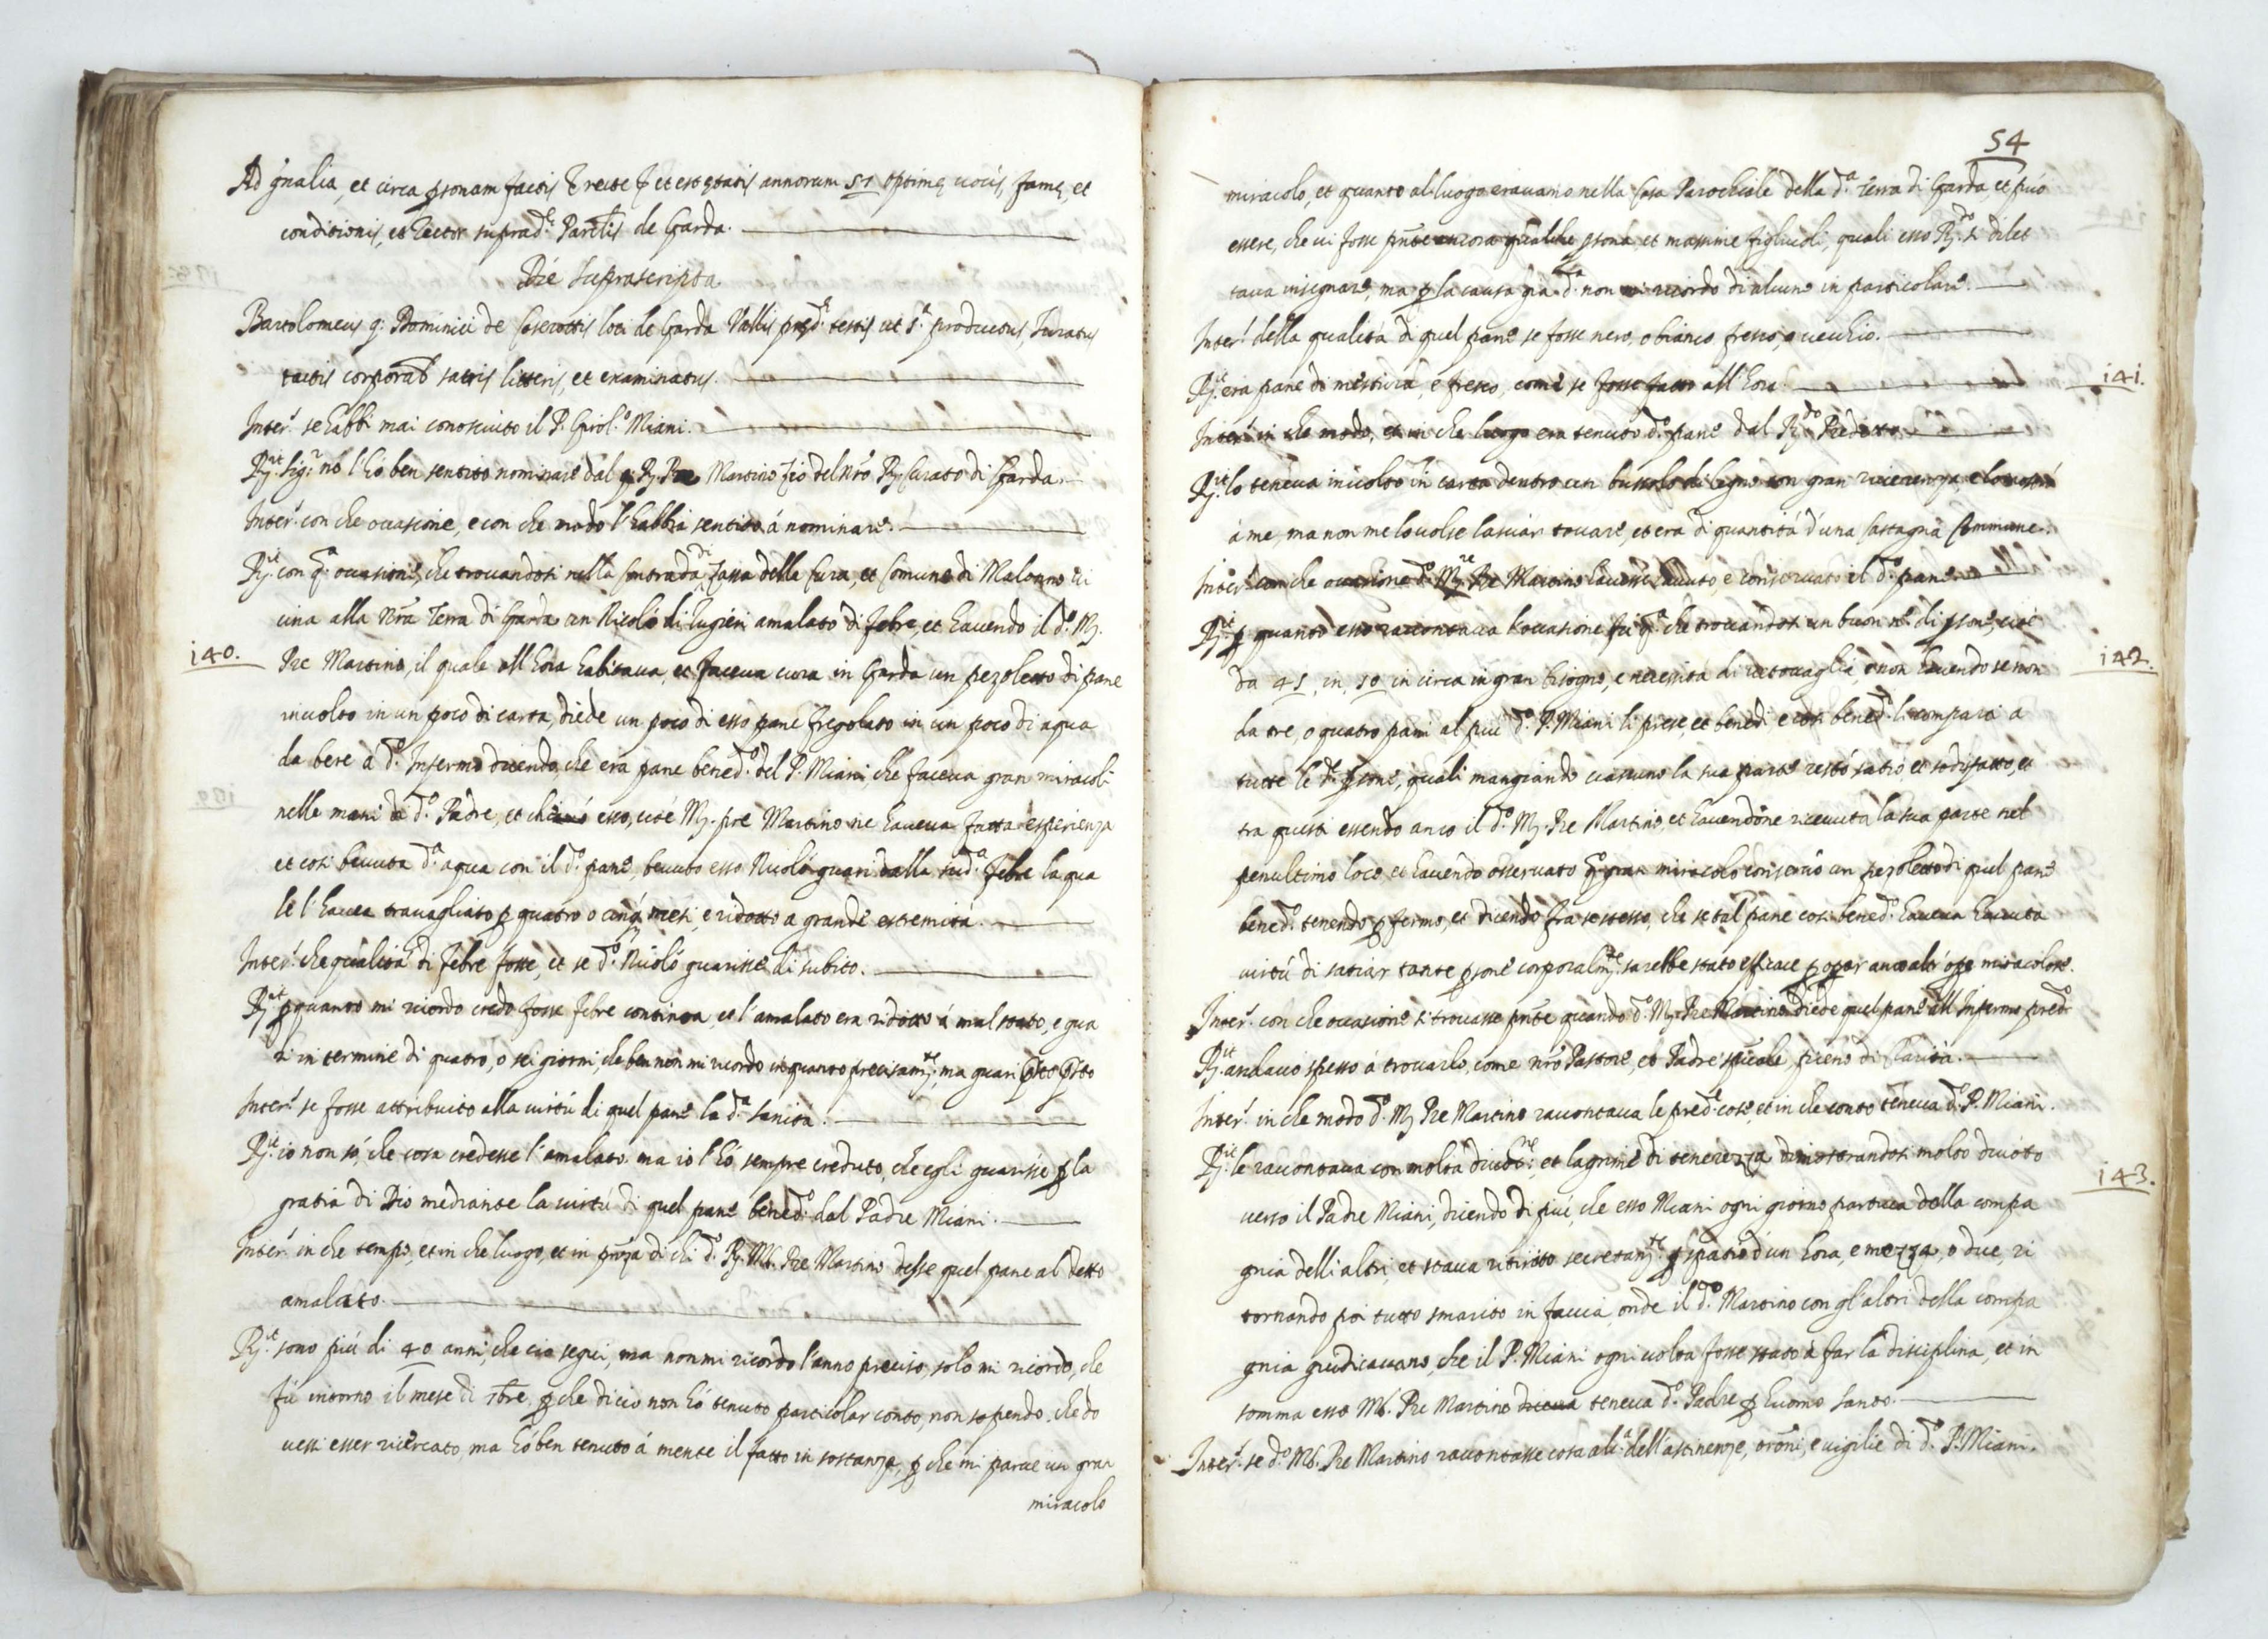 Ad gñalia, et circa psonam factis Ɛ recte et est ętatis annorum 51 optimę uocis, famę, et
conditionis, et Rector suprad.ᵉ Parlis de Garda.
Die suprascripta
Bartolomeus q. Dominici de loci de Garda Vallis pręd.ᵉ testis ut s.ᵃ productus, Iuratus
tactis corporał sacris litteris, et examinatus.
Inter.ᵗ se habbi mai conosciuto il P. Girol.º Miani.
Rx.ⁱᵗ Sig.ʳ nò l'hò ben sentito nominare dal q. R. Pre Martino Zio del nrõ R. Curato di Garda.
Inter.ᵗ con che occasione, e con che modo l'habbia sentito á nominare.
Rx.ⁱᵗ con q.ᵃ occasione, che trouandosi nella Contrada di Fassa della Cura, et Comune di Maloano ui
cina alla nrã Terra di Garda un Nicolò di amalato di febre, et hauendo il d.º M.
140.
Pre Martino, il quale all'hora habitaua, et faceua cura in Garda un pezoletto di pane
inuolto in un poco di carta, diede un poco di esso pane fregolato in un poco di aqua
da bere à d.º Infermo dicendo, che era pane bened.º del P. Miani, che faceua gran miracoli
nelle mani di d.º Padre, et che esso, cioé M. pre Martino ne haueua fatta esperienza
et cosi beuuta d.ᵃ aqua con il d.º pane, beuuto esso Nicolò guarì dalla sud.ᵃ febre la qua
le l'hauea trauagliato p quatro o cinq mesi, e ridotto a grande estremitá.
Inter.ᵗ che qualitá di febre fosse, et se d.º Nicolò guarisse di subito.
Rx.ⁱᵗ p quanto mi ricordo credo fosse febre continoa, et l'amalato era ridotto á mal stato, e gua
ri in termine di quatro, o sei giorni, che ben non mi ricordo in quanto precisam.ᵗᵉ, ma guarì psto psto
Inter.ᵗ se fosse attribuito alla uirtú di quel pane la d.ᵃ sanitá.
Rx.ⁱᵗ io non só, che cosa credesse l'amalato ma io l'hó sempre creduto, che egli guarisse p la
gratia di Dio mediante la uirtú di quel pane bened.º dal Padre Miani.
Inter.ᵗ in che tempo, et in che luogo, et in pñza di chi d.º R. M. Pre Martino desse quel pane al detto
amalato.
Rx.ⁱᵗ sono piú di 40 anni, che cio seguì, ma non mi ricordo l'anno preciso, solo mi ricordo, che
fú intorno il mese di bre, p che di cio non hó tenuto particolar conto, non sapendo, che do
uessi esser ricercato, ma hó ben tenuto á mente il fatto in sostanza, p che mi parue un gran
miracolo
54
miracolo, et quanto al luogo erauamo nella Casa Parochiale della d.ᵃ Terra di Garda, et puo
essere, che ui fosse pñte ancora qualche psona et massime figliuoli, quali esso R.ᵈº si dilet
taua insegnare, ma p la causa gia d.ᵃ non mi ricordo di alcuno in particolare.
Inter.ᵗ della qualitá di quel pane se fosse nero, o bianco, fresco, o uecchio.
Rx.ⁱᵗ era pane di mestura, e fresco, come se fosse fatto all'hora.
141.
Inter.ᵗ in che modo, et in che luogo era tenuto d.º pane dal R.ᵈº Predetto
Rx.ⁱᵗ lo teneua inuolto in carta dentro un bussolo di legno con gran riuerenza, e lo mostró
á me, ma non me lo uolse lasciar tocare, et era di quantitá d'una Castagna Commune.
Inter.ᵗ con che occasione d.º M. Pre Martino hauesse hauuto, e conseruato il d.º pane.
Rx.ⁱᵗ p quanto esso raccontaua l'occasione fu q.ᵃ che trouandosi un buon nº di psone, cioé
142.
da 45, in 50 in circa in gran bisogno, e necessitá di uetouaglia, e non hauendo se non
da tre, o quatro pani al piú d.º P. Miani li prese, et benedì e cosi bened.ᵗⁱ li compartì a
tutte le d.ᵉ psone, quali mangiando ciascuno la sua parte restó satio et sodisfatto, et
tra questi essendo anco il d.º M. Pre Martino, et hauendone riceuuta la sua parte nel
penultimo loco, et hauendo osseruato q.º gran miracolo conseruò un pezoletto di quel pane
bened.º tenendo p fermo, et dicendo fra se stesso, che se tal pane cosi bened.º haueua hauuta
uirtú di satiar tante psone corporalm.ᵗᵉ, sarebbe stato efficace p oprar anco altr' opre miracolose.
Inter.ᵗ con che occasione si trouasse pñte quando d.º M. Pre Martino diede quel pane all'Infermo pred.º
Rx.ⁱᵗ andauo spesso á trouarlo, come nrõ Pastore, et Padre spũale, pieno di Caritá.
Inter.ᵗ in che modo d.º M. Pre Martino raccontaua le pred.ᵉ cose, et in che conto teneua d.º P. Miani.
Rx.ⁱᵗ le raccontaua con molta diuot.ⁿᵉ, et lagrime di tenerezza dimostrandosi molto diuoto
143.
uerso il Padre Miani, dicendo di piú, che esso Miani ogni giorno partiua dalla compa
gnia delli altri, et staua ritirato secretam.ᵗᵉ p spatio d'un hora, e mezza, o due, ri
tornando poi tutto smarito in faccia, onde il d.º Martino con gl'altri della compa
gnia giudicauano, che il P. Miani ogni uolta fosse stato á far la disciplina, et in
somma esso M. Pre Martino diceua teneua d.º Padre p huomo santo.
Inter.ᵗ se d.º M. Pre Martino raccontasse cosa alc.ᵃ dell'astinenze, orõni, e uigilie di d.º P. Miani.